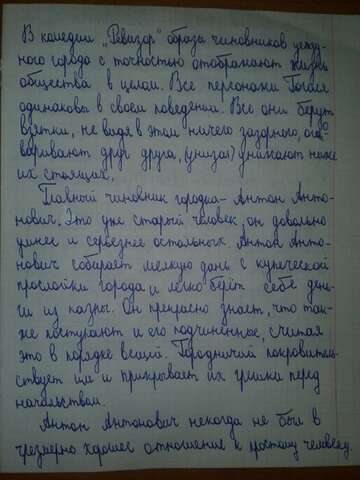 В комедии „Ревизор" образа чиновников уезд-
ного города с точностью отображают жизнь
общества в целом. Все персонажи Гоголя
одинаковы в своем поведении. Все они берут
взятки, не видя в этом ничего зазорного, ого-
варивают друг друга, (унизая) унижают ниже
их стоящих.
Главный чиновник городка - Антон Анто-
нович. Это уже старый человек, он довольно
умнее и серьезнее остальных. Антон Анто-
нович собирает мелкую дань с купеческой
прослойки города и легко берёт себе день-
ги из казны. Он прекрасно знает, что так-
же поступают и его подчиненные, считая
это в порядке вещей. Городничий покровитель-
ствует им и прикрывает их грешки перед
начальством.
Антон Антонович некогда не был в
чрезмерно хорошее отношение к простому человеку.